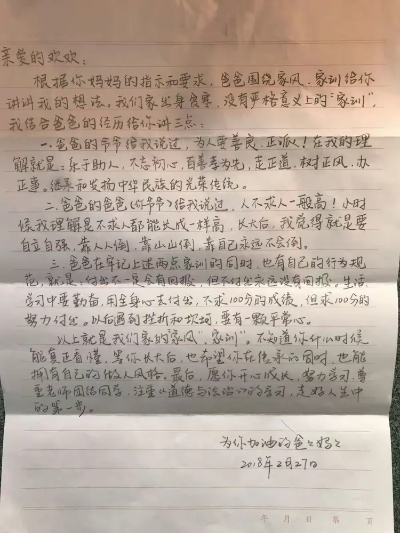 亲爱的欢欢:
根据你妈妈的指示和要求,爸爸围绕家风、家训给你
讲讲我的想法。我们家出身贫寒,没有严格意义上的“家训”,
我结合爸爸的经历给你讲三点:
一.爸爸的爷爷给我说过,为人要善良、正派!在我的理
解就是:乐于助人,不忘初心,百善孝为先,走正道,树正风,办
正事。继承和发扬中华民族的光荣传统。
二.爸爸的爸爸(你爷爷)给我说过,人不求人一般高!小时
候我理解是不求人都能长成一样高,长大后,我觉得就是要
自立自强,靠人人倒,靠山山倒,靠自己永远不会倒。
三.爸爸在牢记上述两点家训的同时,也有自己的行为规
范,就是:付出不一定会有回报,但不付出永远没有回报。生活、
学习中要勤奋,用全身心去付出,不求100分的成绩,但求100分的
努力付出。以后遇到挫折和坎坷,要有一颗平常心。
以上就是我们家的“家风”、“家训”。不知道你什么时候
能真正看懂,等你长大后,也希望你在传承的同时,也能
拥有自己的做人风格。最后,愿你开心成长,努力学习,尊
重老师团结同学,注重《道德与法治》的学习,走好人生中
的第一步。
为你加油的爸爸妈妈
2018年2月27日
年 月 日 第 页